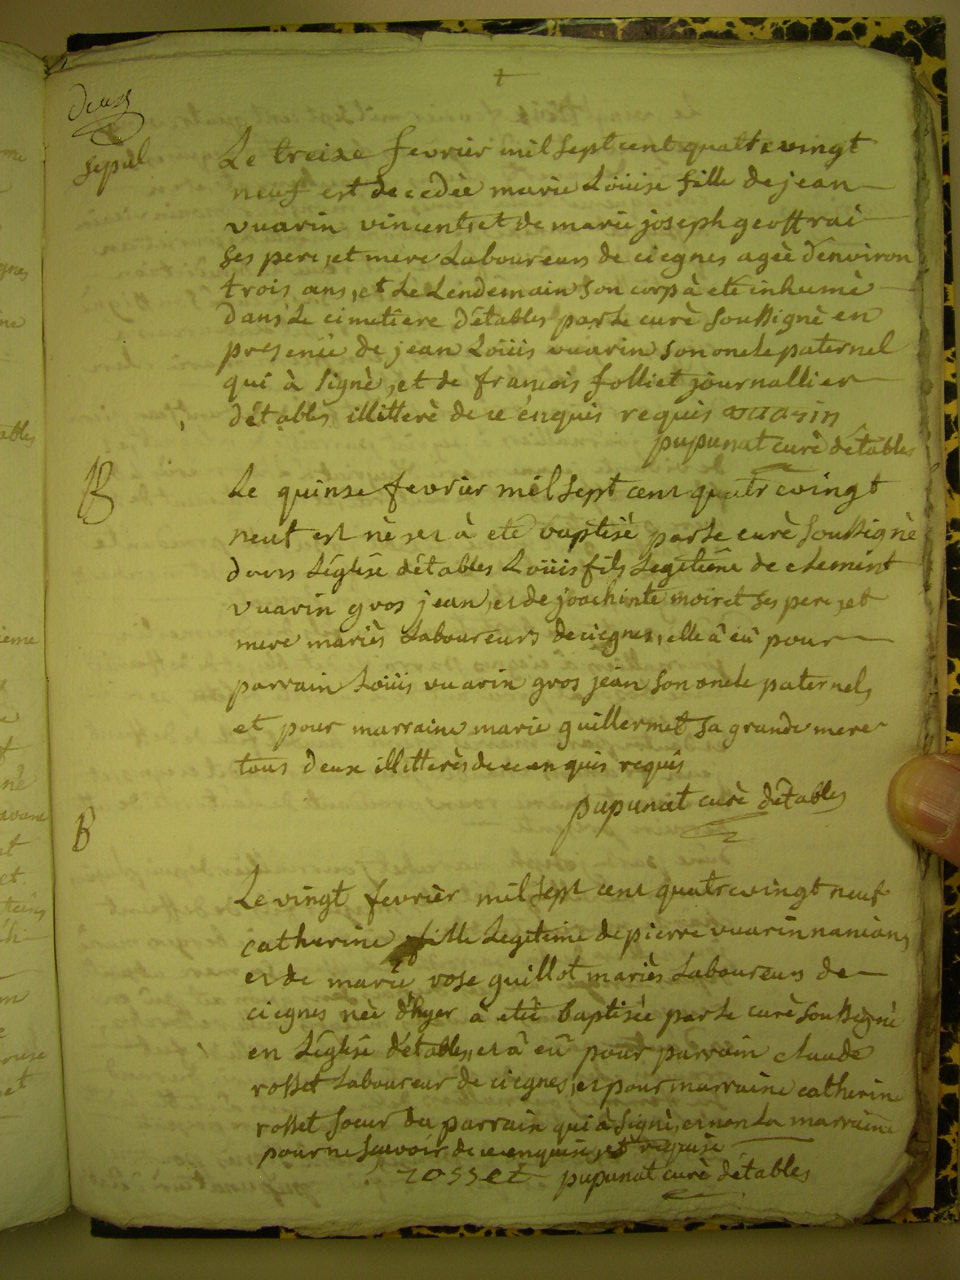 deux
sepul
Le treize fevrier mil sept cent quattrevingt
neuf est decedèe marie Loüise fille de jean
vuarin vincent, et de marie joseph geoffrai
ses pere, et mere Laboureurs de ciegnes agèe d'environ
trois ans, et Le Lendemain son corp à etè inhumè
dans Le cimetiere d'étables par Le curè soussignè en
presence de jean Loüis vuarin son oncle paternel
qui à signè, et de francois folliet journallier
d'étables illitterè de ce énquis requis vuarin
pupunat curè d'étables
B
Le quinze fevrier mil sept cent quatrevingt
neuf est nè, et à etè baptisé par Le curè soussignè
dans L'églisé d'étables Loüis fils Legitime de clemint
vuarin gros jean, et de joachinte moiret ses pere, et
mere mariès Laboureurs de ciegnes, elle â eû pour
parrain Loüis vuarin gros jean son oncle paternel,
et pour marraine marie guillermet sa grande mere
tous deux illitterès de ce enquis requis
pupunat curè d'étables
B
Le vingt fevrièr mil sept cent quatrevingt neuf
catherine fille Legitime de pierre vuarin nanian,
et de marie rose guillot mariès Laboureurs de
ciegnes neè d'hyer à etèe baptisèe par Le curè soussignè
en L'églisé d'étables, et â eû pour parrain claude
rosset Laboureur de ciegnes, et pour marraine catherine
rosset soeur du parrain qui à signè, et non La marraine
pour ne sçavoir de ce enquise, et requise
rosset pupunat curè d'étables